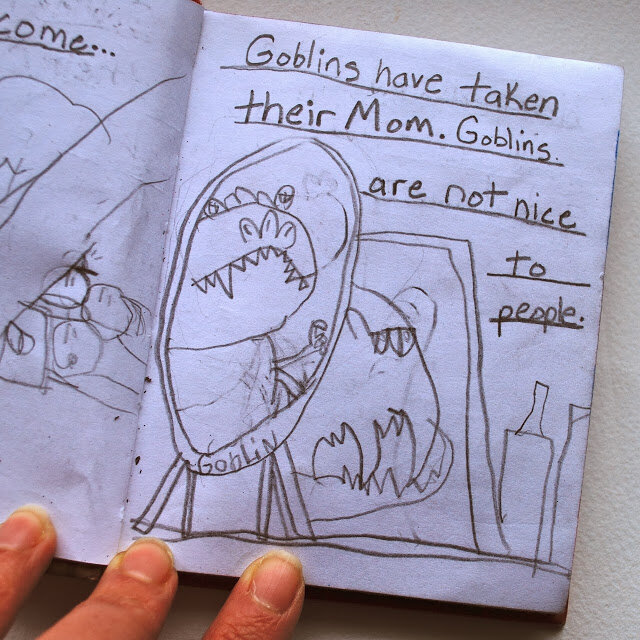 come...
Goblins have taken
their Mom. Goblins.
are not nice
to
people.
Goblin